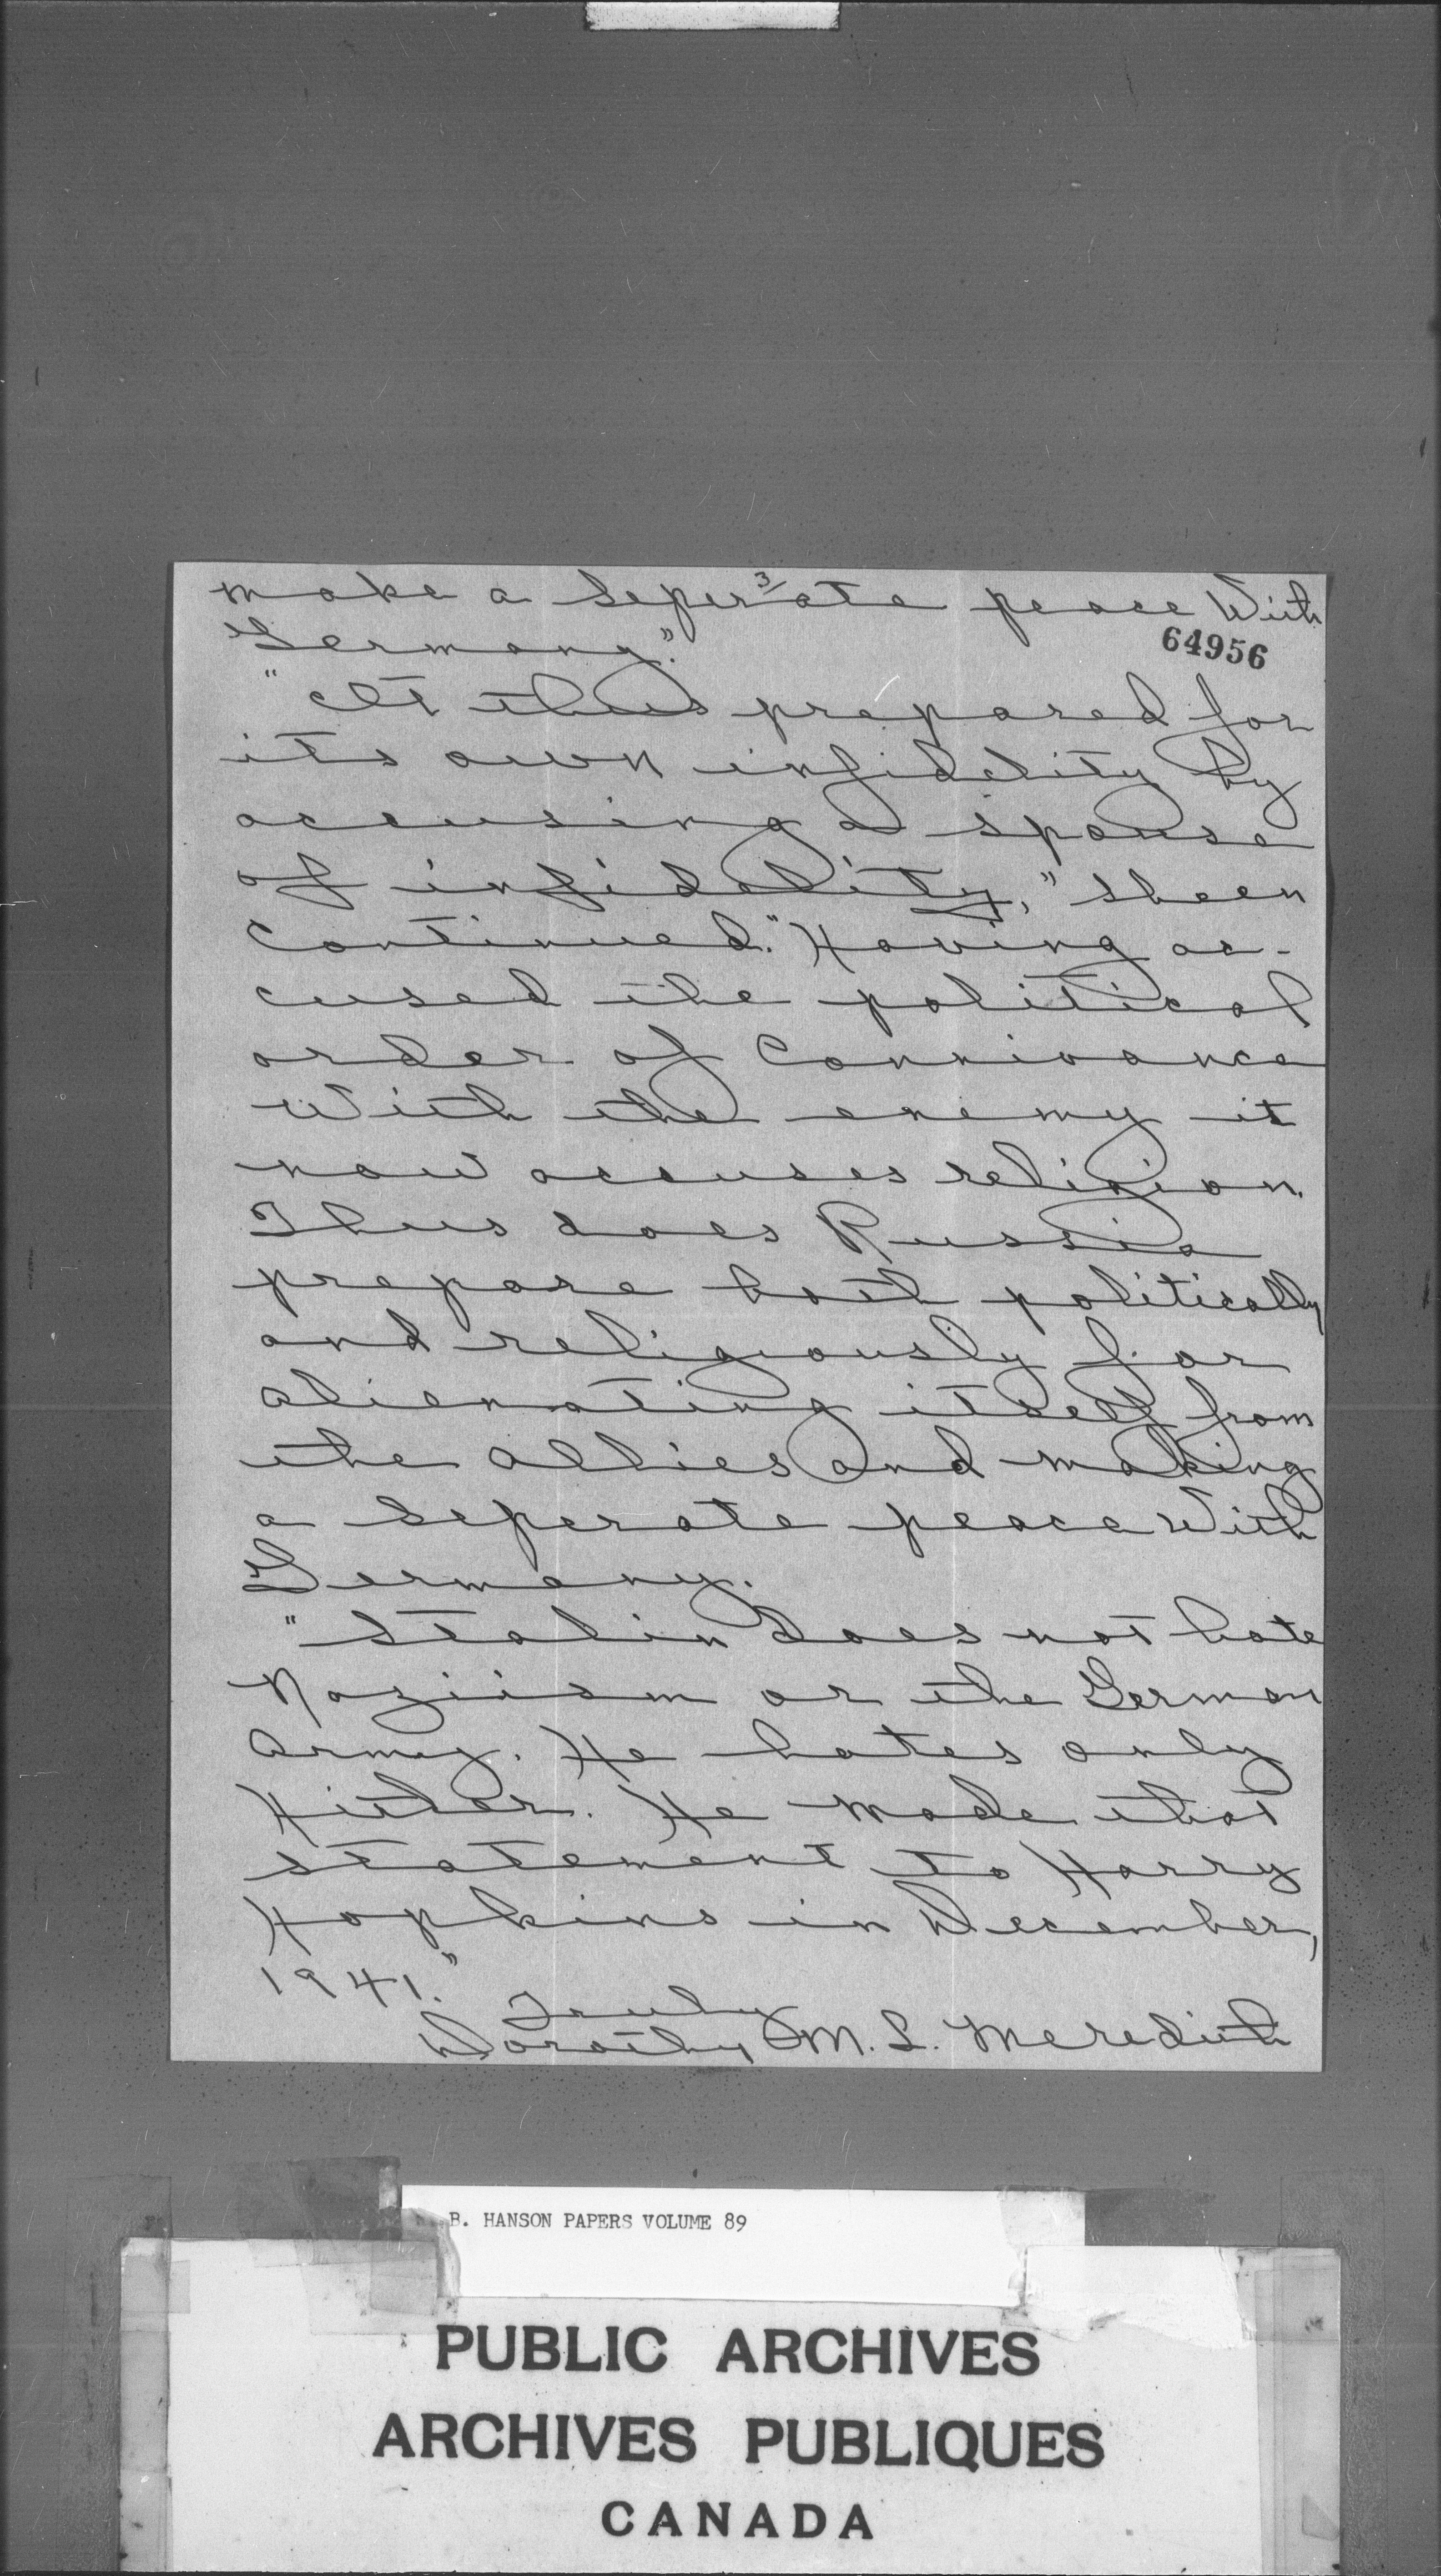 3/
make a seperate peace with
64956
Germany."
"It thus prepared for
its own infidelity by
accusing a spouse
of infidelity," Sheen
continued. "Having ac-
cused the political
order of connivance
with the enemy it
now accuses religion.
Thus does Russia
prepare both politically
and religiously for
alienating itself from
the Allies and making
a seperate peace with
Germany.
"Stalin does not hate
Naziism or the German
Army. He hates only
Hitler. He made that
statement to Harry
Hopkins in December,
1941."
Truly
Dorothy M. L. Meredith
B. HANSON PAPERS VOLUME 89
PUBLIC ARCHIVES
ARCHIVES PUBLIQUES
CANADA